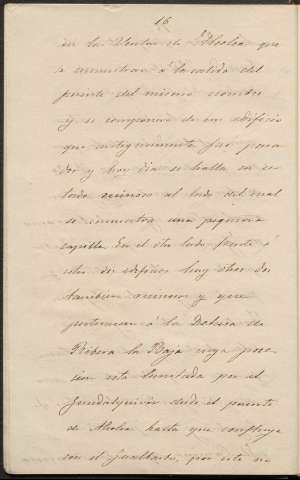 16
en la Venta de Alcolea que
se encuentra á la salida del
puente del mismo nombre
y se compone de un edificio
que antiguamente fue para
dor y hoy dia se halla en es
tado ruinoso al lado del cual
se encuentra una pequeña
capilla. En el otro lado frente á
estos dos edificios hay otros dos
tambien ruinosos y que
pertenecen á la Dehesa de
Rivera la Baja cuya pose
sion está limitada por el
Guadalquivir desde el puente
de Alcolea hasta que confluye
con el Guadbarbo, por este